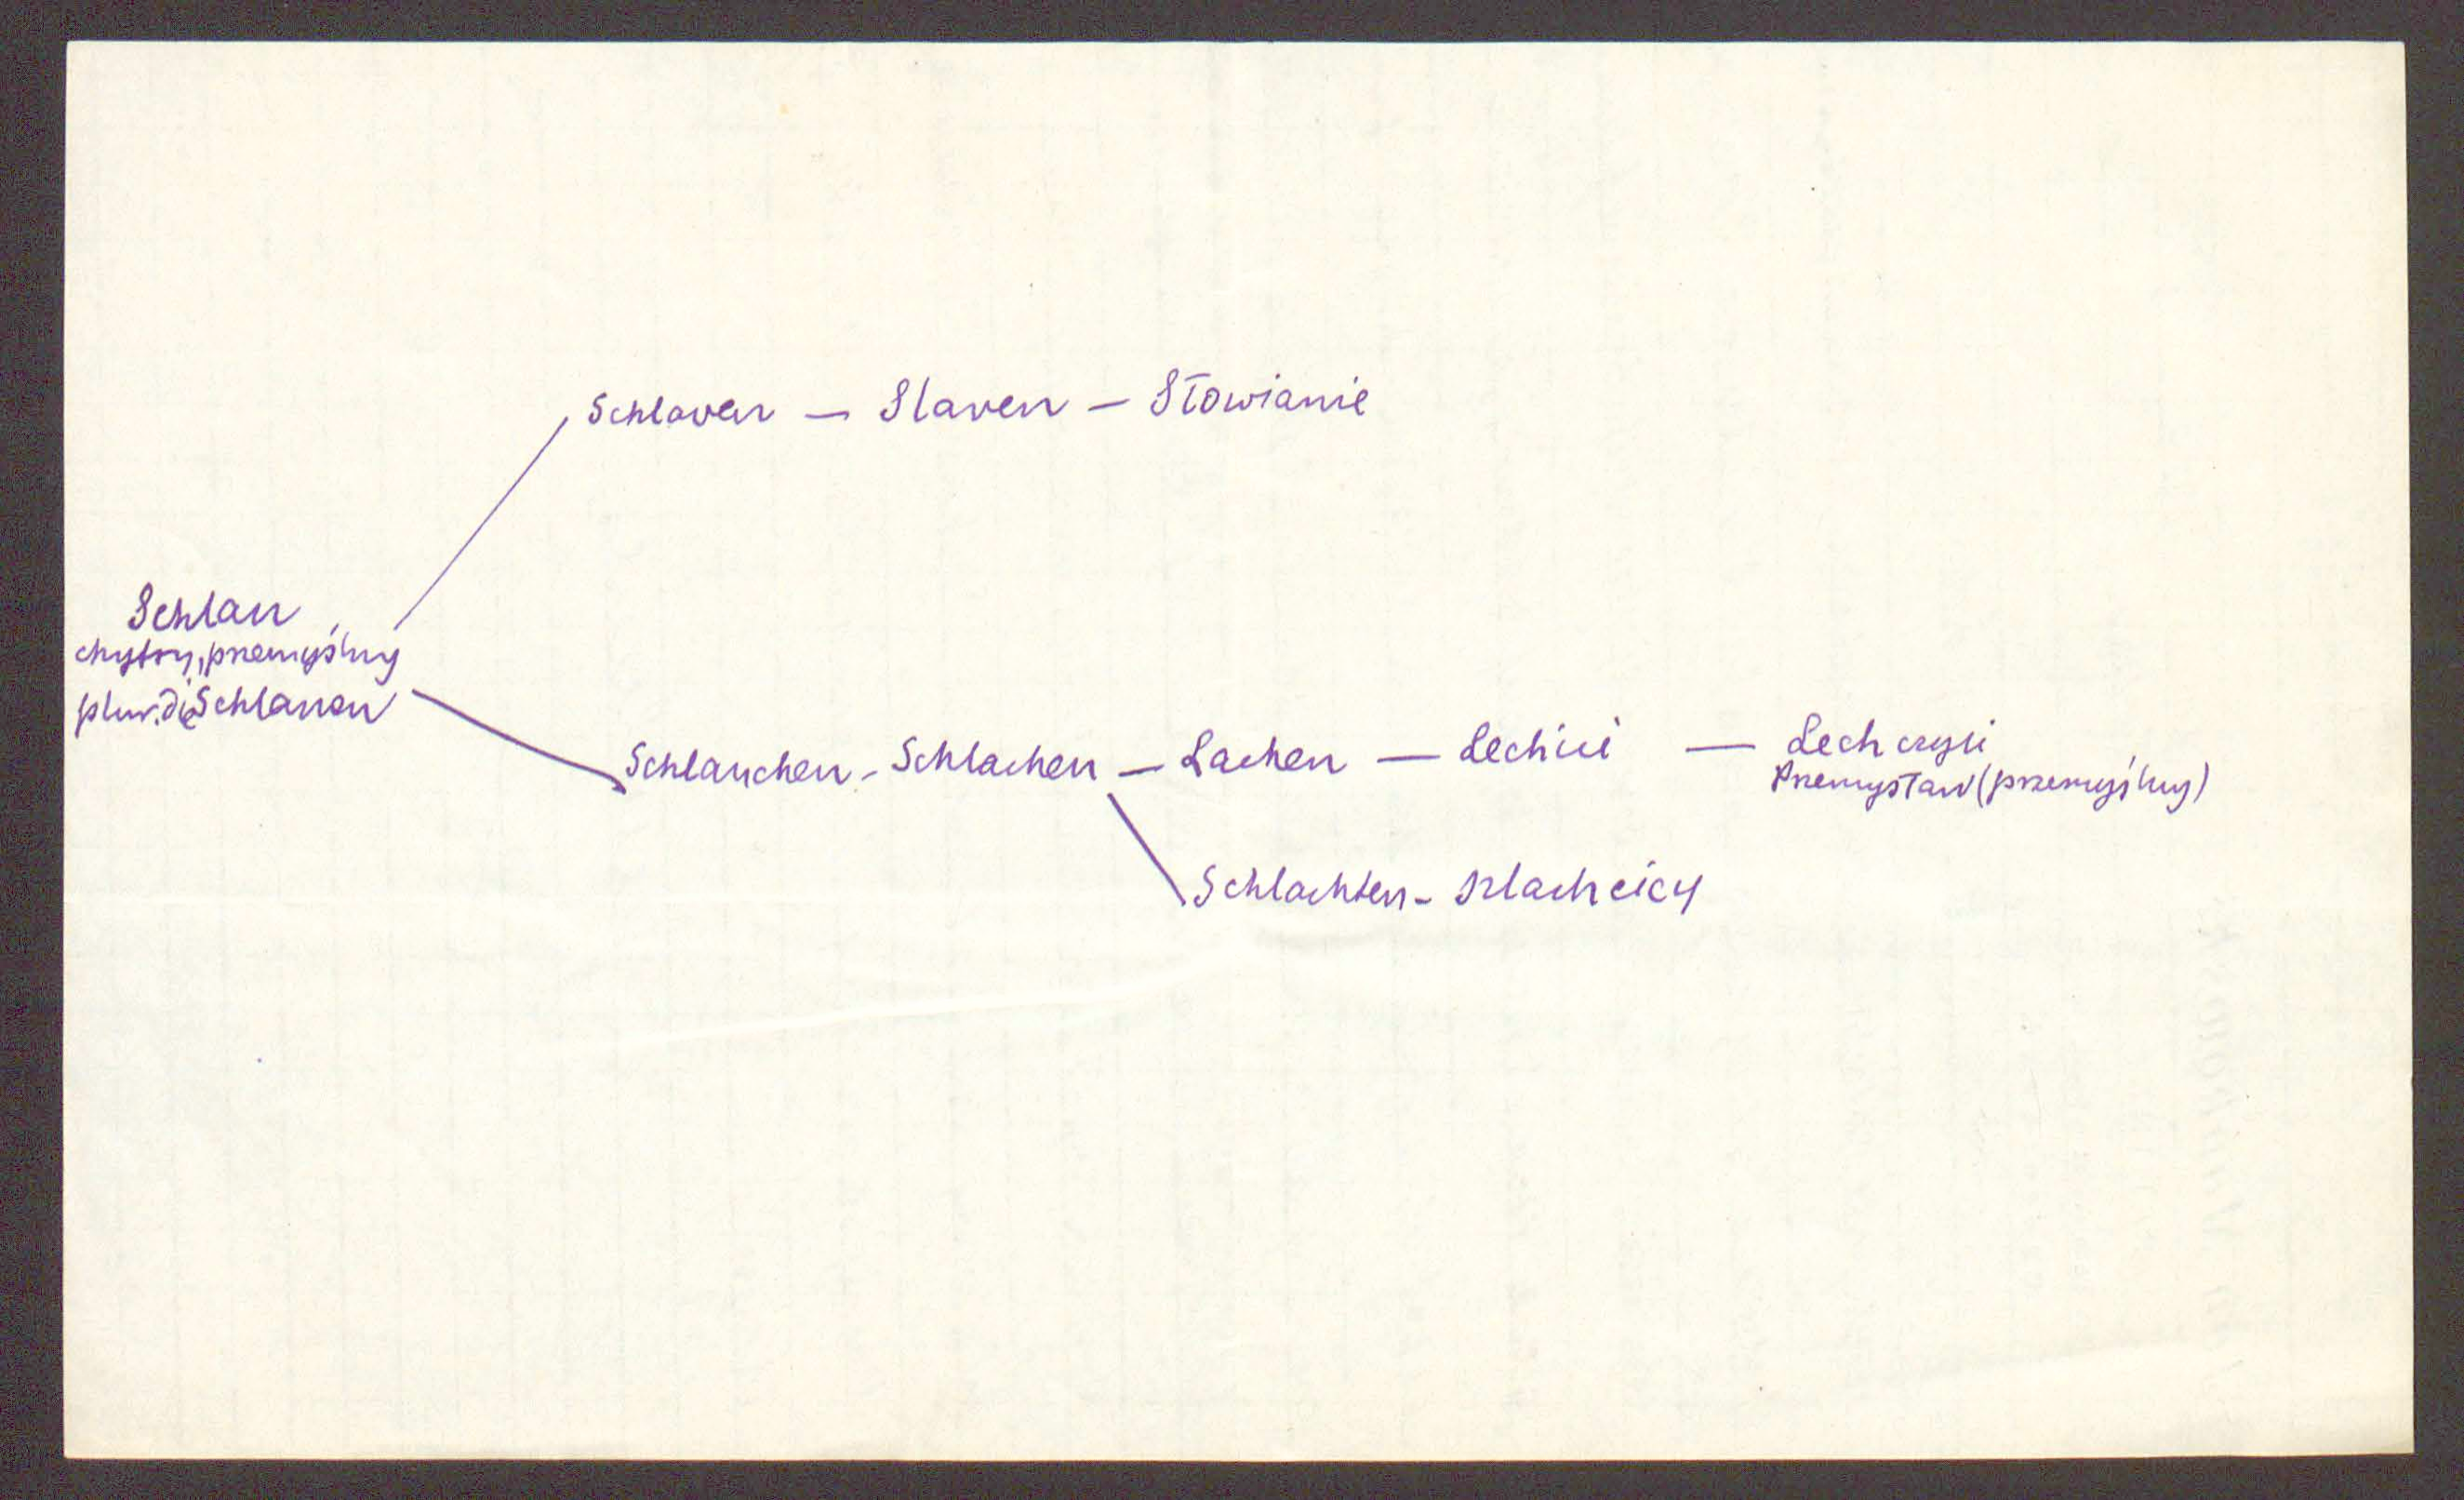 Schlaven — Slaven — Słowianie
Schlau
chytry, przemyślny
plur. die Schlauen
Schlauchen - Schlachen — Lachen — Lechici — Lech czyli
Przemysław (przemyślny)
Schlachten - szlachcicy